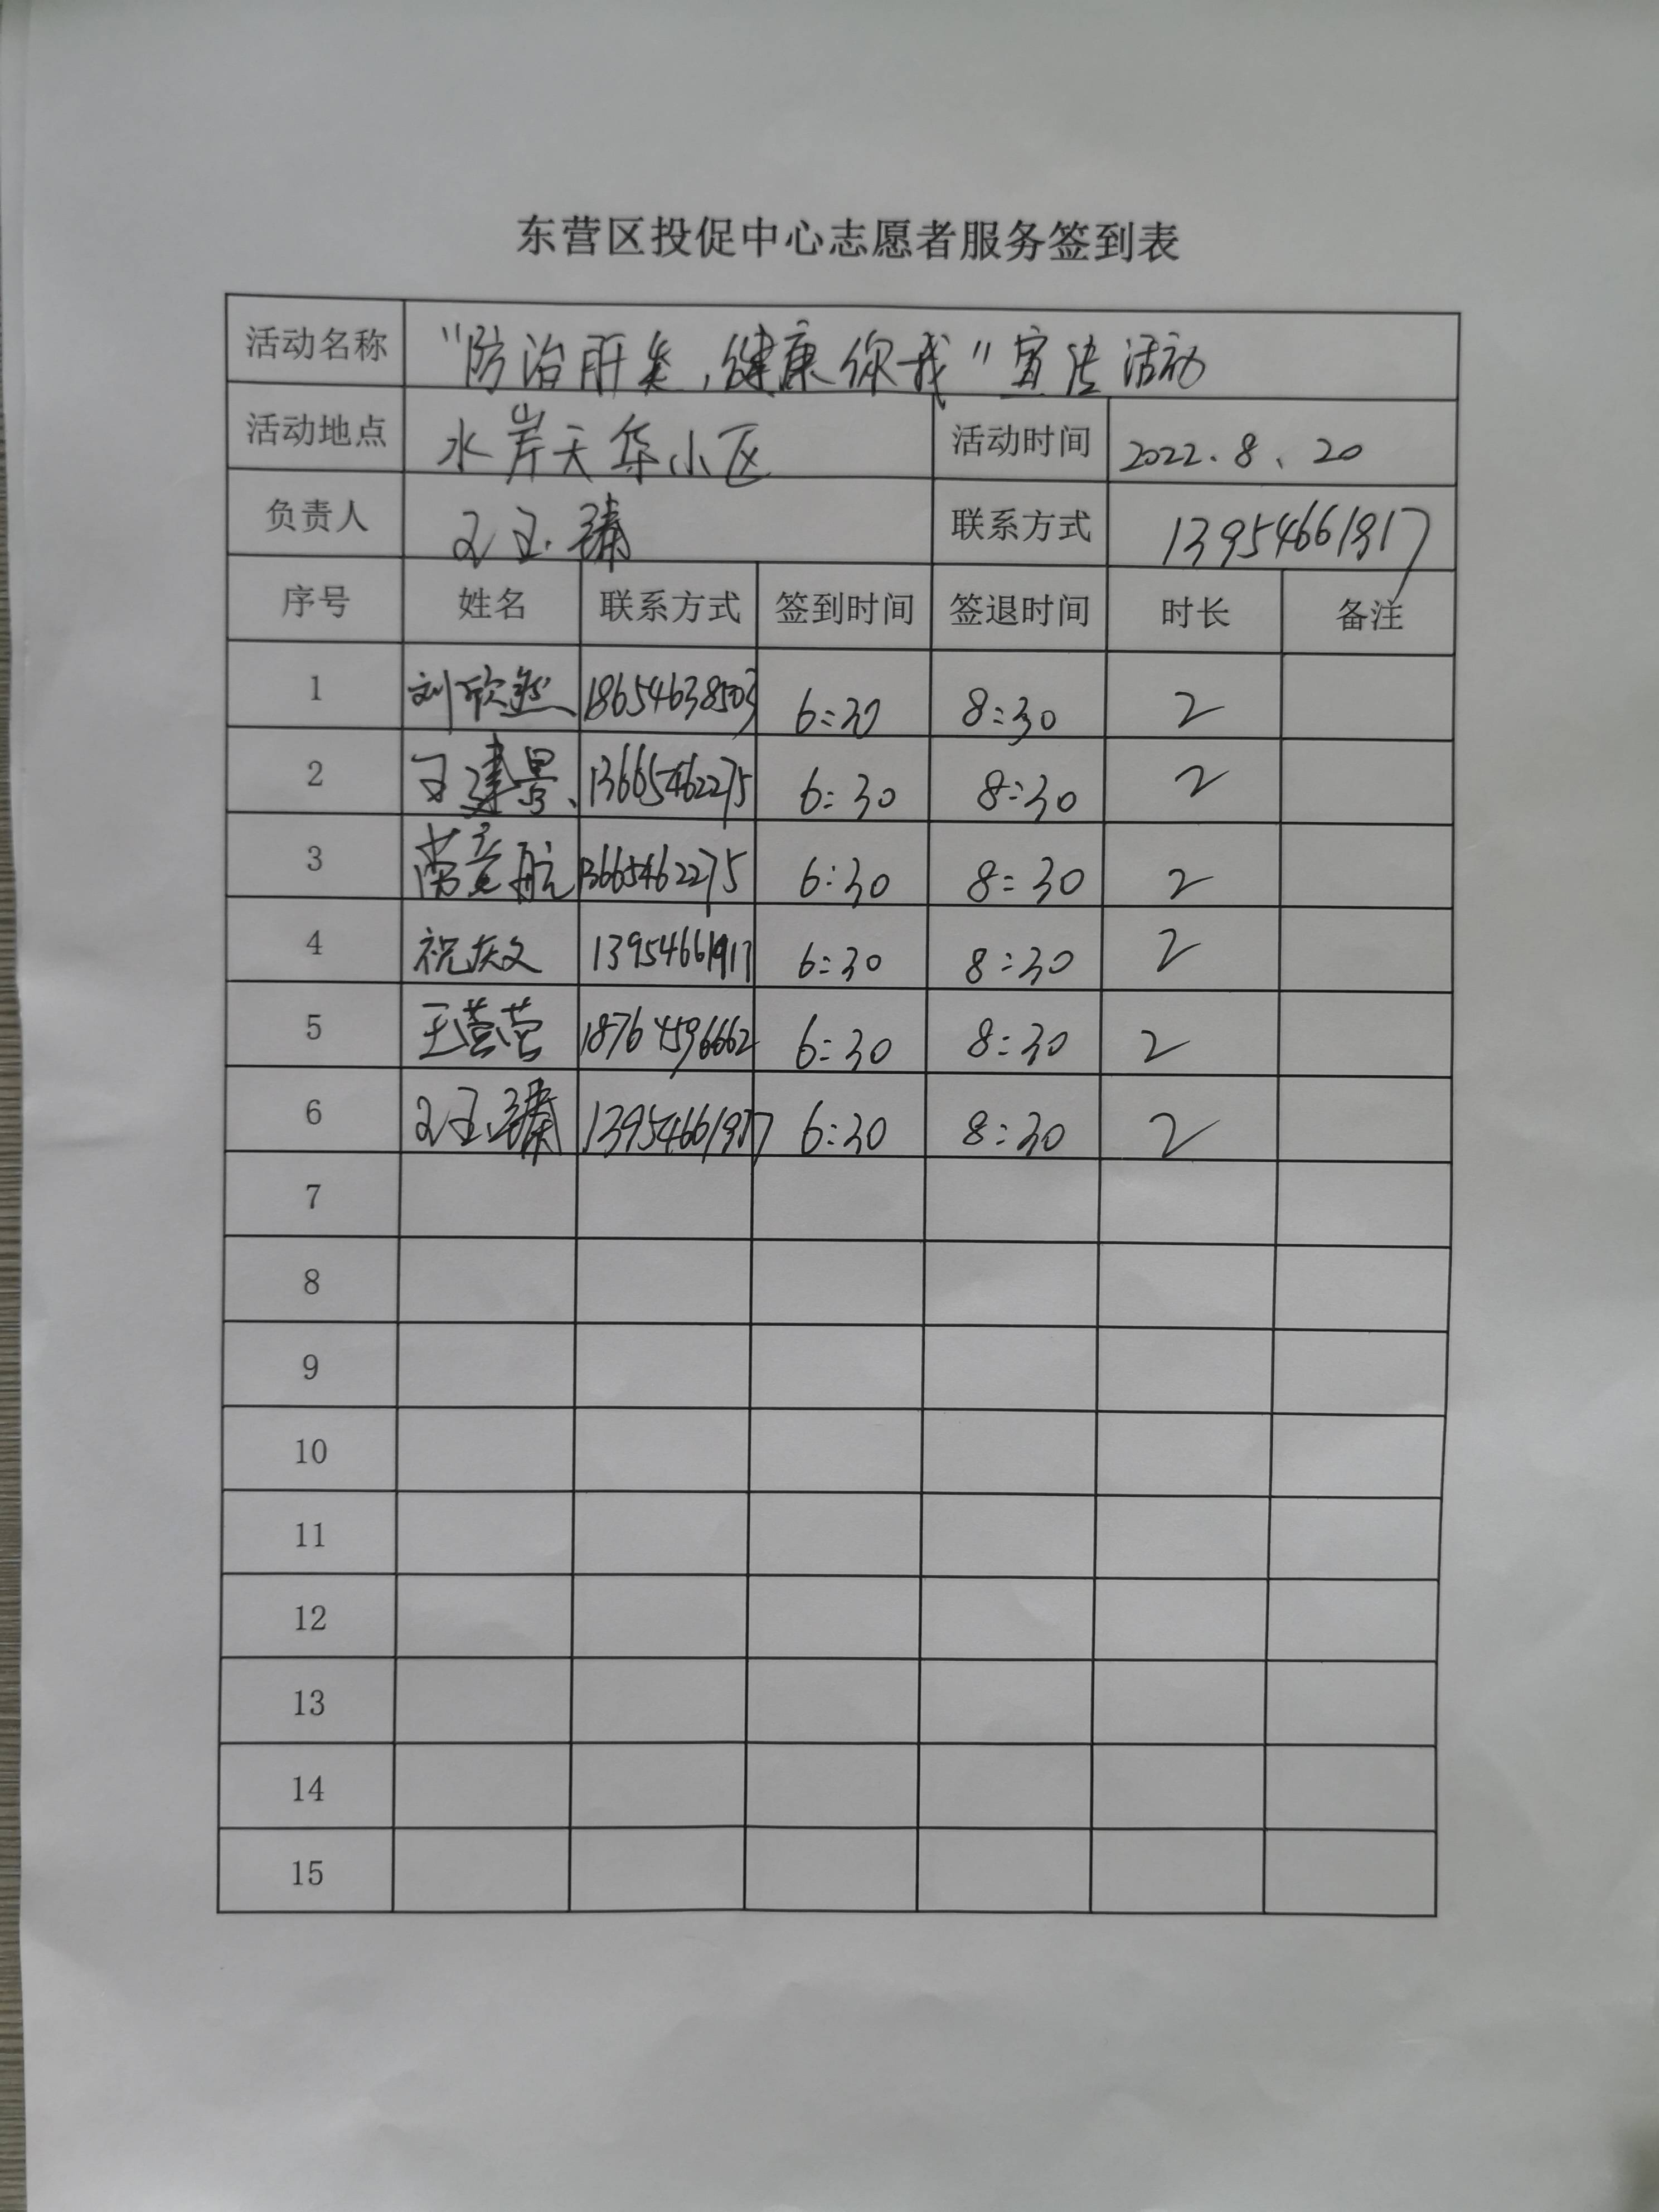 东营区投促中心志愿者服务签到表
活动名称 "防治肝炎,健康你我"宣传活动
活动地点 水岸天华小区 活动时间 2022.8、20
负责人 王玉 联系方式 13954661917
序号 姓名 联系方式 签到时间 签退时间 时长 备注
1 刘欣然 18654638503 6:30 8:30 2
2 王建景 13665462275 6:30 8:30 2
3 航 13665462275 6:30 8:30 2
4 祝庆文 13954661917 6:30 8:30 2
5 王营营 18764596662 6:30 8:30 2
6 王玉 13954661917 6:30 8:30 2
7
8
9
10
11
12
13
14
15